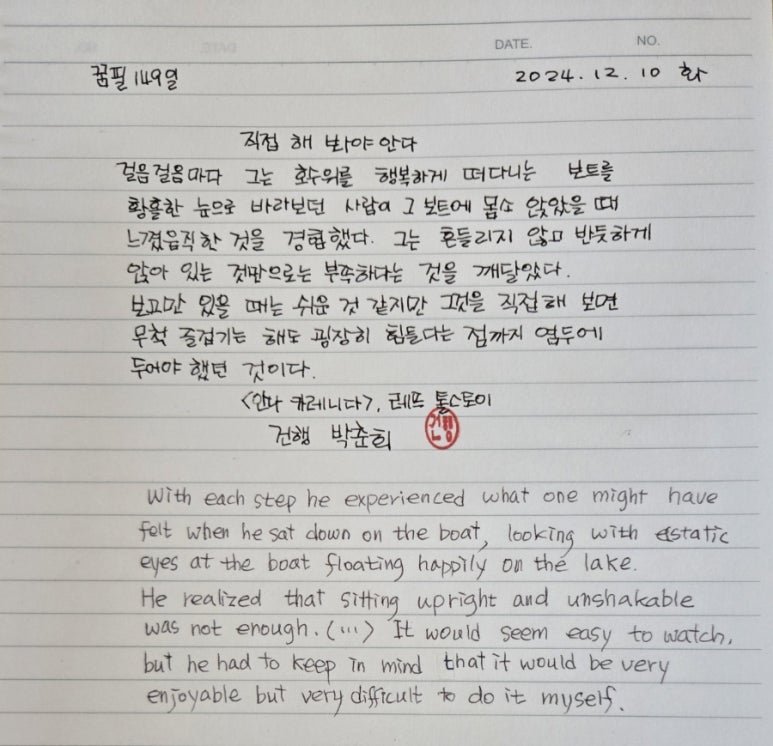 DATE. NO.
꿈필 149일 2024. 12. 10 화
직접 해 봐야 안다
걸음걸음마다 그는 호수위를 행복하게 떠다니는 보트를
황홀한 눈으로 바라보던 사람이 그 보트에 몸소 앉았을 때
느꼈음직한 것을 경험했다. 그는 흔들리지 않고 반듯하게
앉아 있는 것만으로는 부족하다는 것을 깨달았다.
보고만 있을 때는 쉬운 것 같지만 그것을 직접 해 보면
무척 즐겁기는 해도 굉장히 힘들다는 점까지 염두에
두어야 했던 것이다.
<안나 카레니나>, 레프 톨스토이
건행 박춘희 건행
With each step he experienced what one might have
felt when he sat down on the boat, looking with estatic
eyes at the boat floating happily on the lake.
He realized that sitting upright and unshakable
was not enough. (···) It would seem easy to watch,
but he had to keep in mind that it would be very
enjoyable but very difficult to do it myself.